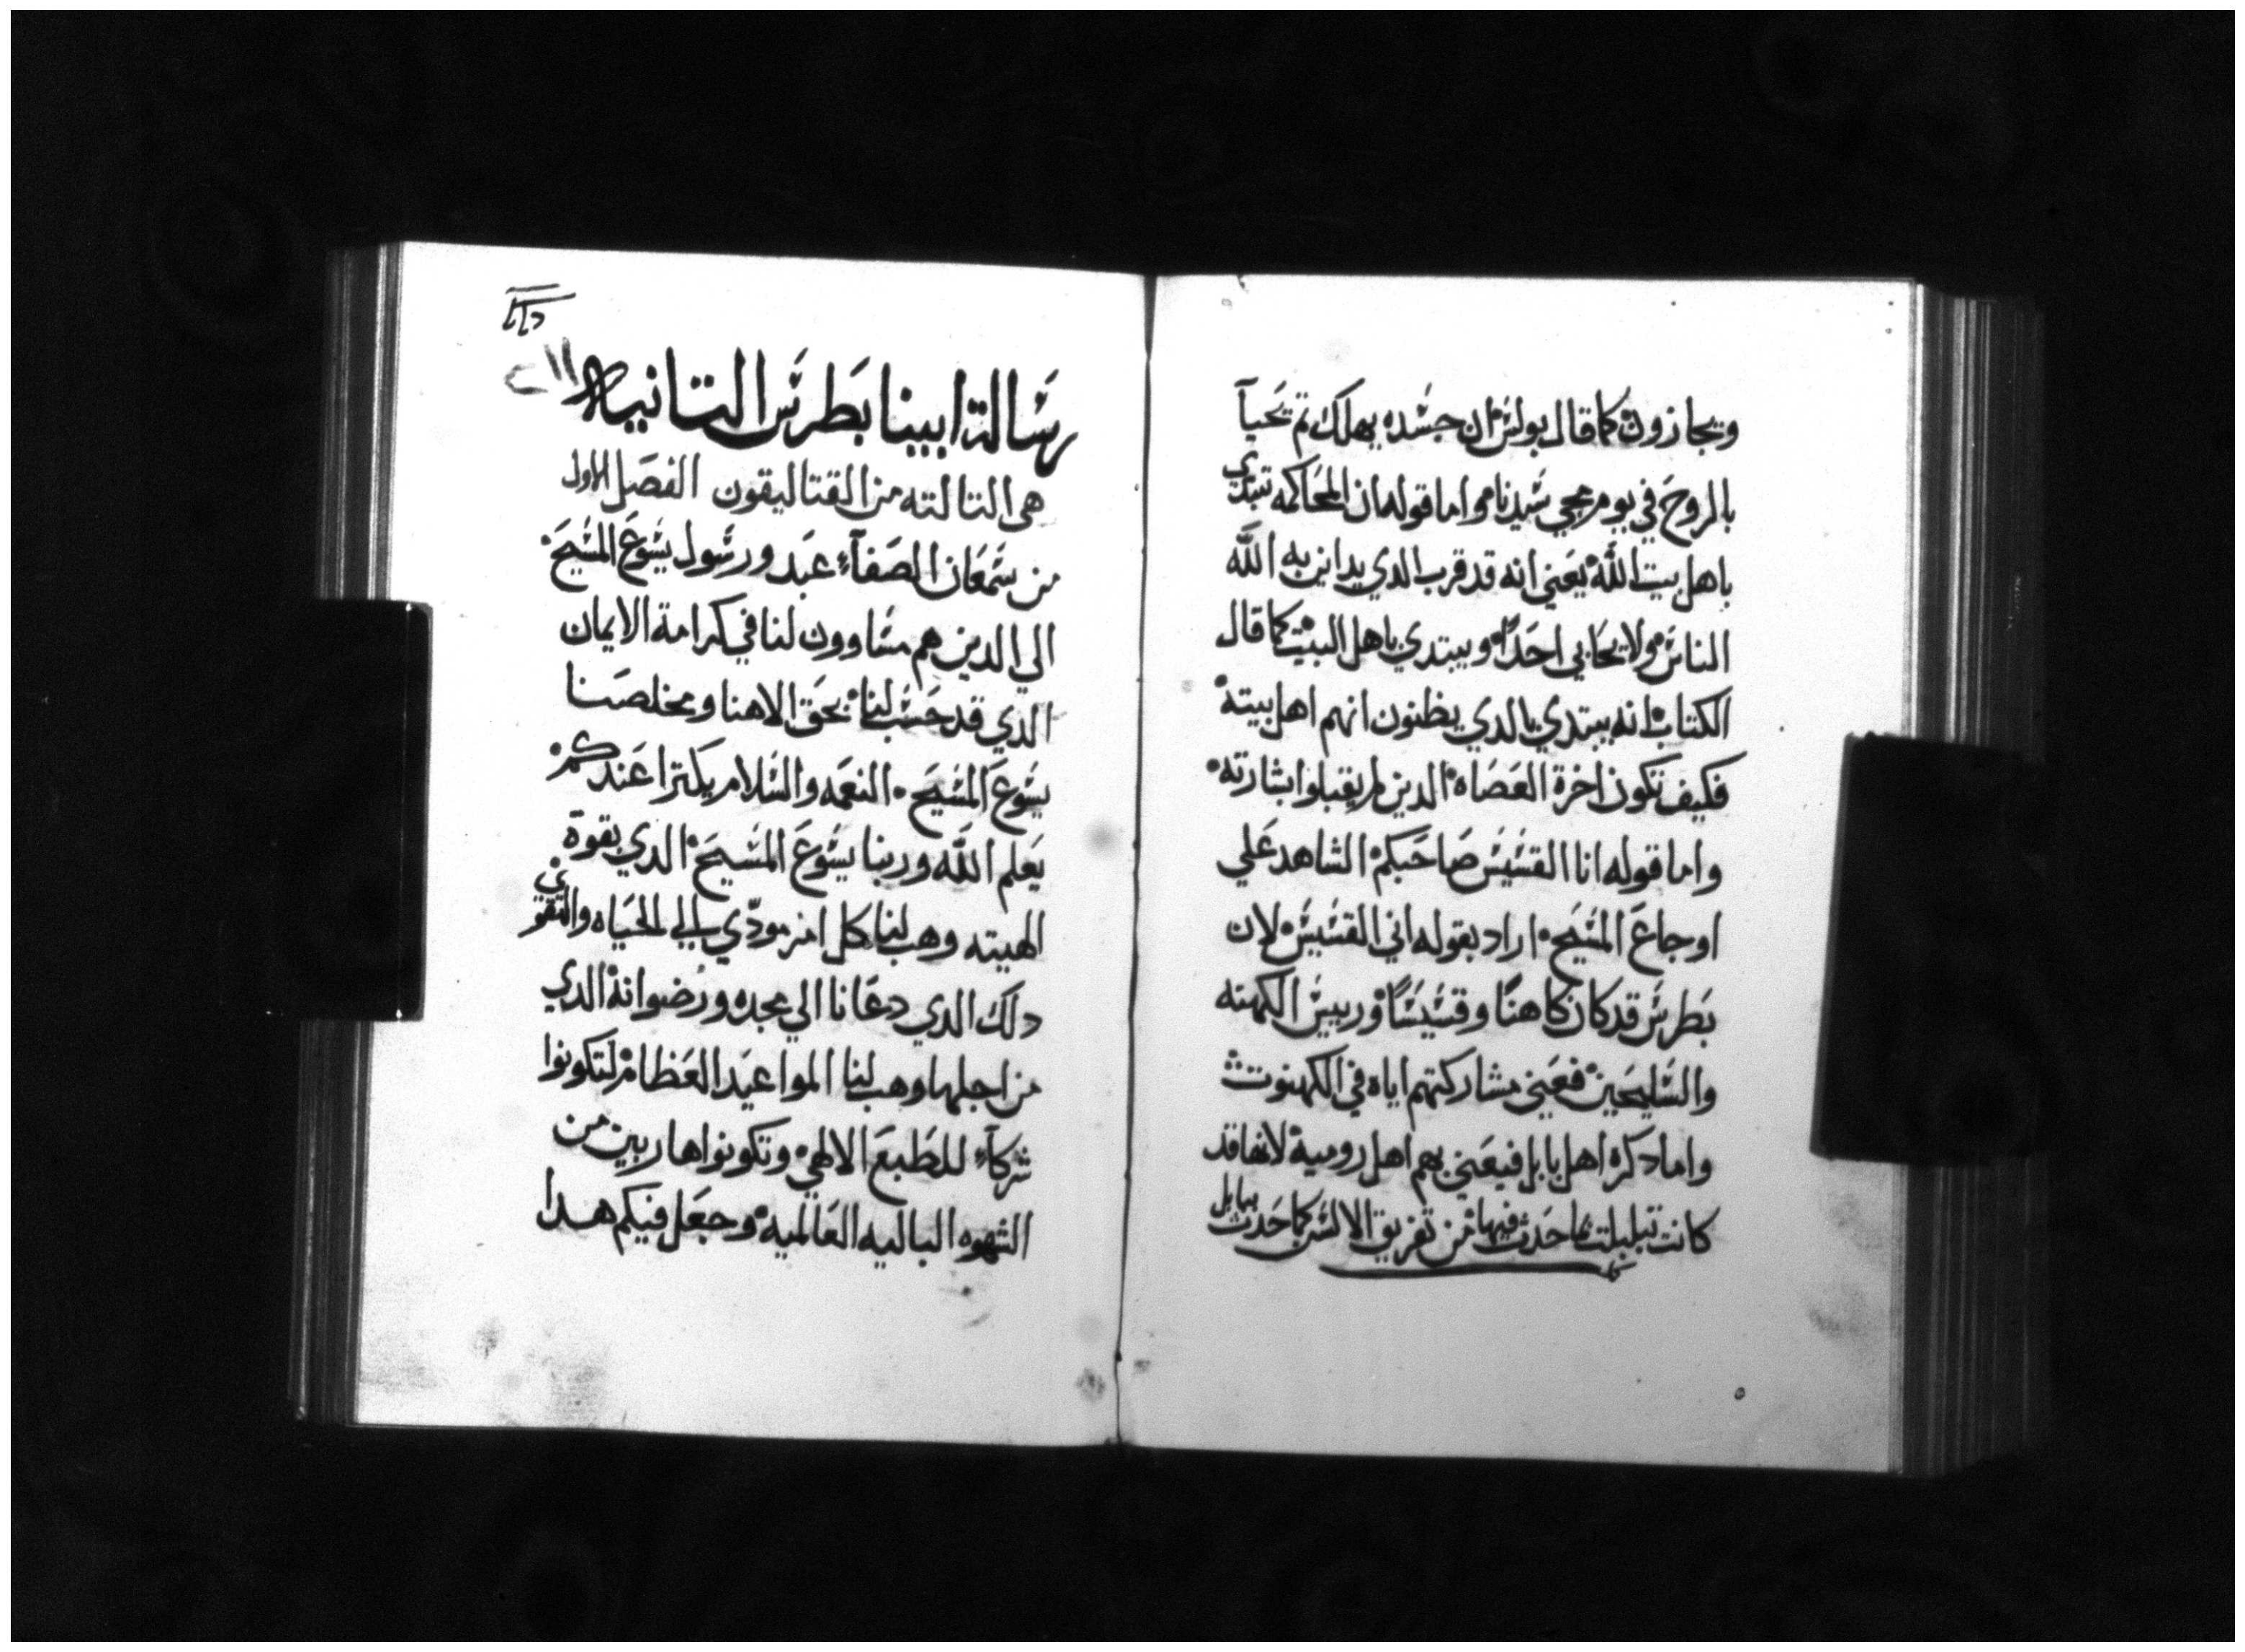 ويجازون كما قال بولس ان جسده يهلك تم تحيآ
بالروح في يوم مجي سيدنا واما قوله ان المحاكمه تبتدي
باهل بيت الله يعني انه قد قرب الدي يداين به الله
الناس ولا يحابي احدًا ويبتدي باهل البيت كما قال
الكتاب انه يبتدي بالدي يظنون انهم اهل بيته
فكيف تكون اخرة العصاه الدين لم يقبلوا بشارته
واما قوله انا القسيس صاحبكم الشاهد علي
اوجاع المسيح اراد بقوله اني القسيس لان
بطرس قد كان كاهنًا وقسيسًا وربيس الكهنه
والسليحين فعني مشاركتهم اياه في الكهنوت
واما دكره اهل بابل فيعني بهم اهل رومية لانها قد
كانت تبلبلت لما حدث فيها من تفريق الالسن كما حدث ببابل
رسالة ابينا بطرس التانيه
٢١١
هي التالته من القتاليقون الفصل الاول
من سمعان الصفآء عبد ورسول يسوع المسيح
الي الدين هم مساوون لنا في كرامة الايمان
الدي قد حسب لنا بحق الاهنا ومخلصنا
يسوع المسيح النعمه والسلام يكترا عندكم
يعلم الله وربنا يسوع المسيح الدي بقوة
الهيته وهب لنا كل امر مودّي الي الحياه والتقوي
دلك الدي دعانا الي مجده ورضوانه الدي
من اجلها وهب لنا المواعيد العظام لتكونوا
شركآء للطبع الالهي وتكونوا هاربين من
الشهوه الباليه العالميه وجعل فيكم هدا